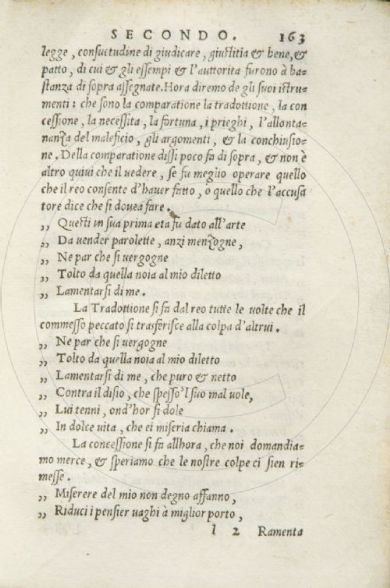 SECONDO. 163
legge, consuetudine di giudicare, giustitia & bene, &
patto, di cui & gli essempi & l'auttorita furono à ba-
stanza di sopra assegnate. Hora diremo de gli suoi istru-
menti: che sono la comparatione la tradottione, la con
cessione, la necessita, la fortuna, i prieghi, l'allonta-
nanza del maleficio, gli argomenti, & la conchiusio-
ne. Della comparatione dissi poco fa di sopra, & non è
altro quiui che il uedere, se fu meglio operare quello
che il reo consente d'hauer fatto, o quello che l'accusa
tore dice che si douea fare.
,, Questi in sua prima eta fu dato all'arte
,, Da uender parolette, anzi menzogne,
,, Ne par che si uergogne
,, Tolto da quella noia al mio diletto
,, Lamentarsi di me.
La Tradottione si fa dal reo tutte le uolte che il
commesso peccato si trasferisce alla colpa d'altrui.
,, Ne par che si uergogne
,, Tolto da quella noia al mio diletto
,, Lamentarsi di me, che puro & netto
,, Contra il disio, che spesso'l suo mal uole,
,, Lui tenni, ond'hor si dole
,, In dolce uita, che ei miseria chiama.
La concessione si fa allhora, che noi domandia-
mo merce, & speriamo che le nostre colpe ci sien ri-
messe.
,, Miserere del mio non degno affanno,
,, Riduci i pensier uaghi à miglior porto,
l 2 Ramenta